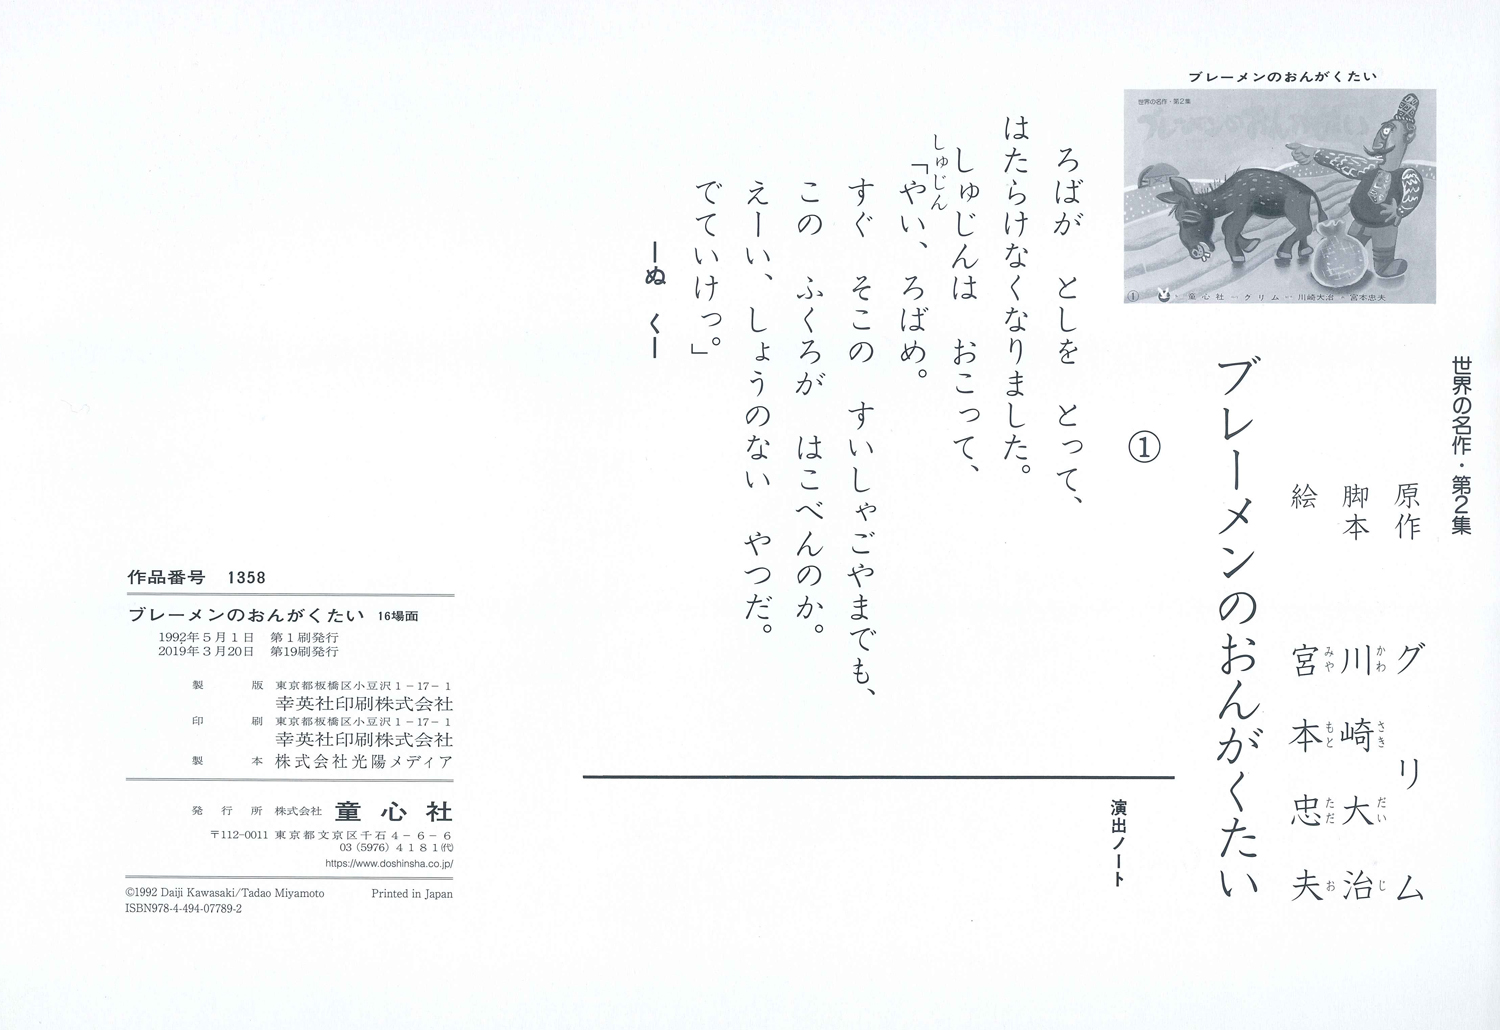 世界の名作・第2集
原作 グリム
脚本 川崎大治
かわさきだいじ
絵 宮本忠夫
みやもとただお
ブレーメンのおんがくたい
ブレーメンのおんがくたい
世界の名作・第2集
ブレーメンのおんがくたい
① 童心社－グリム－川崎大治・宮本忠夫
①
ろばが としを とって、
はたらけなくなりました。
しゅじんは おこって、
しゅじん
「やい、ろばめ。
すぐ そこの すいしゃごやまでも、
この ふくろが はこべんのか。
えーい、しょうのない やつだ。
でていけっ。」
―ぬ く―
演出ノート
作品番号 1358
ブレーメンのおんがくたい 16場面
1992年5月1日 第1刷発行
2019年3月20日 第19刷発行
製版 東京都板橋区小豆沢1－17－1
幸英社印刷株式会社
印刷 東京都板橋区小豆沢1－17－1
幸英社印刷株式会社
製本 株式会社光陽メディア
発行所 株式会社 童心社
〒112-0011 東京都文京区千石4－6－6
03(5976)4181(代)
https://www.doshinsha.co.jp/
©1992 Daiji Kawasaki/Tadao Miyamoto Printed in Japan
ISBN978-4-494-07789-2